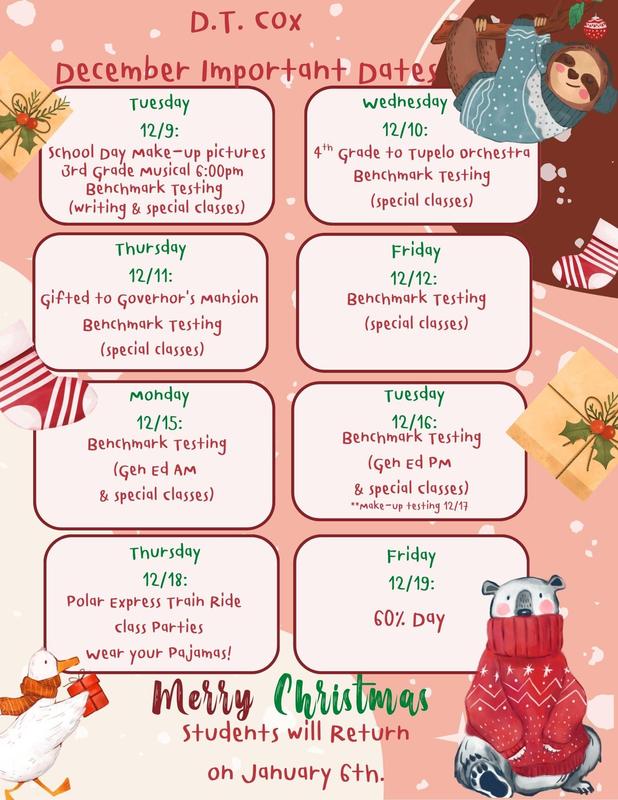 D.T. Cox
December Important Dates
Tuesday
12/9:
School Day Make-up pictures
3rd Grade Musical 6:00pm
Benchmark Testing
(writing & special classes)
Wednesday
12/10:
4th Grade to Tupelo Orchestra
Benchmark Testing
(special classes)
Thursday
12/11:
Gifted to Governor's Mansion
Benchmark Testing
(special classes)
Friday
12/12:
Benchmark Testing
(special classes)
Monday
12/15:
Benchmark Testing
(Gen Ed AM
& special classes)
Tuesday
12/16:
Benchmark Testing
(Gen Ed PM
& special classes)
**Make-up testing 12/17
Thursday
12/18:
Polar Express Train Ride
Class Parties
Wear your Pajamas!
Friday
12/19:
60% Day
Merry Christmas
Students will Return
on January 6th.